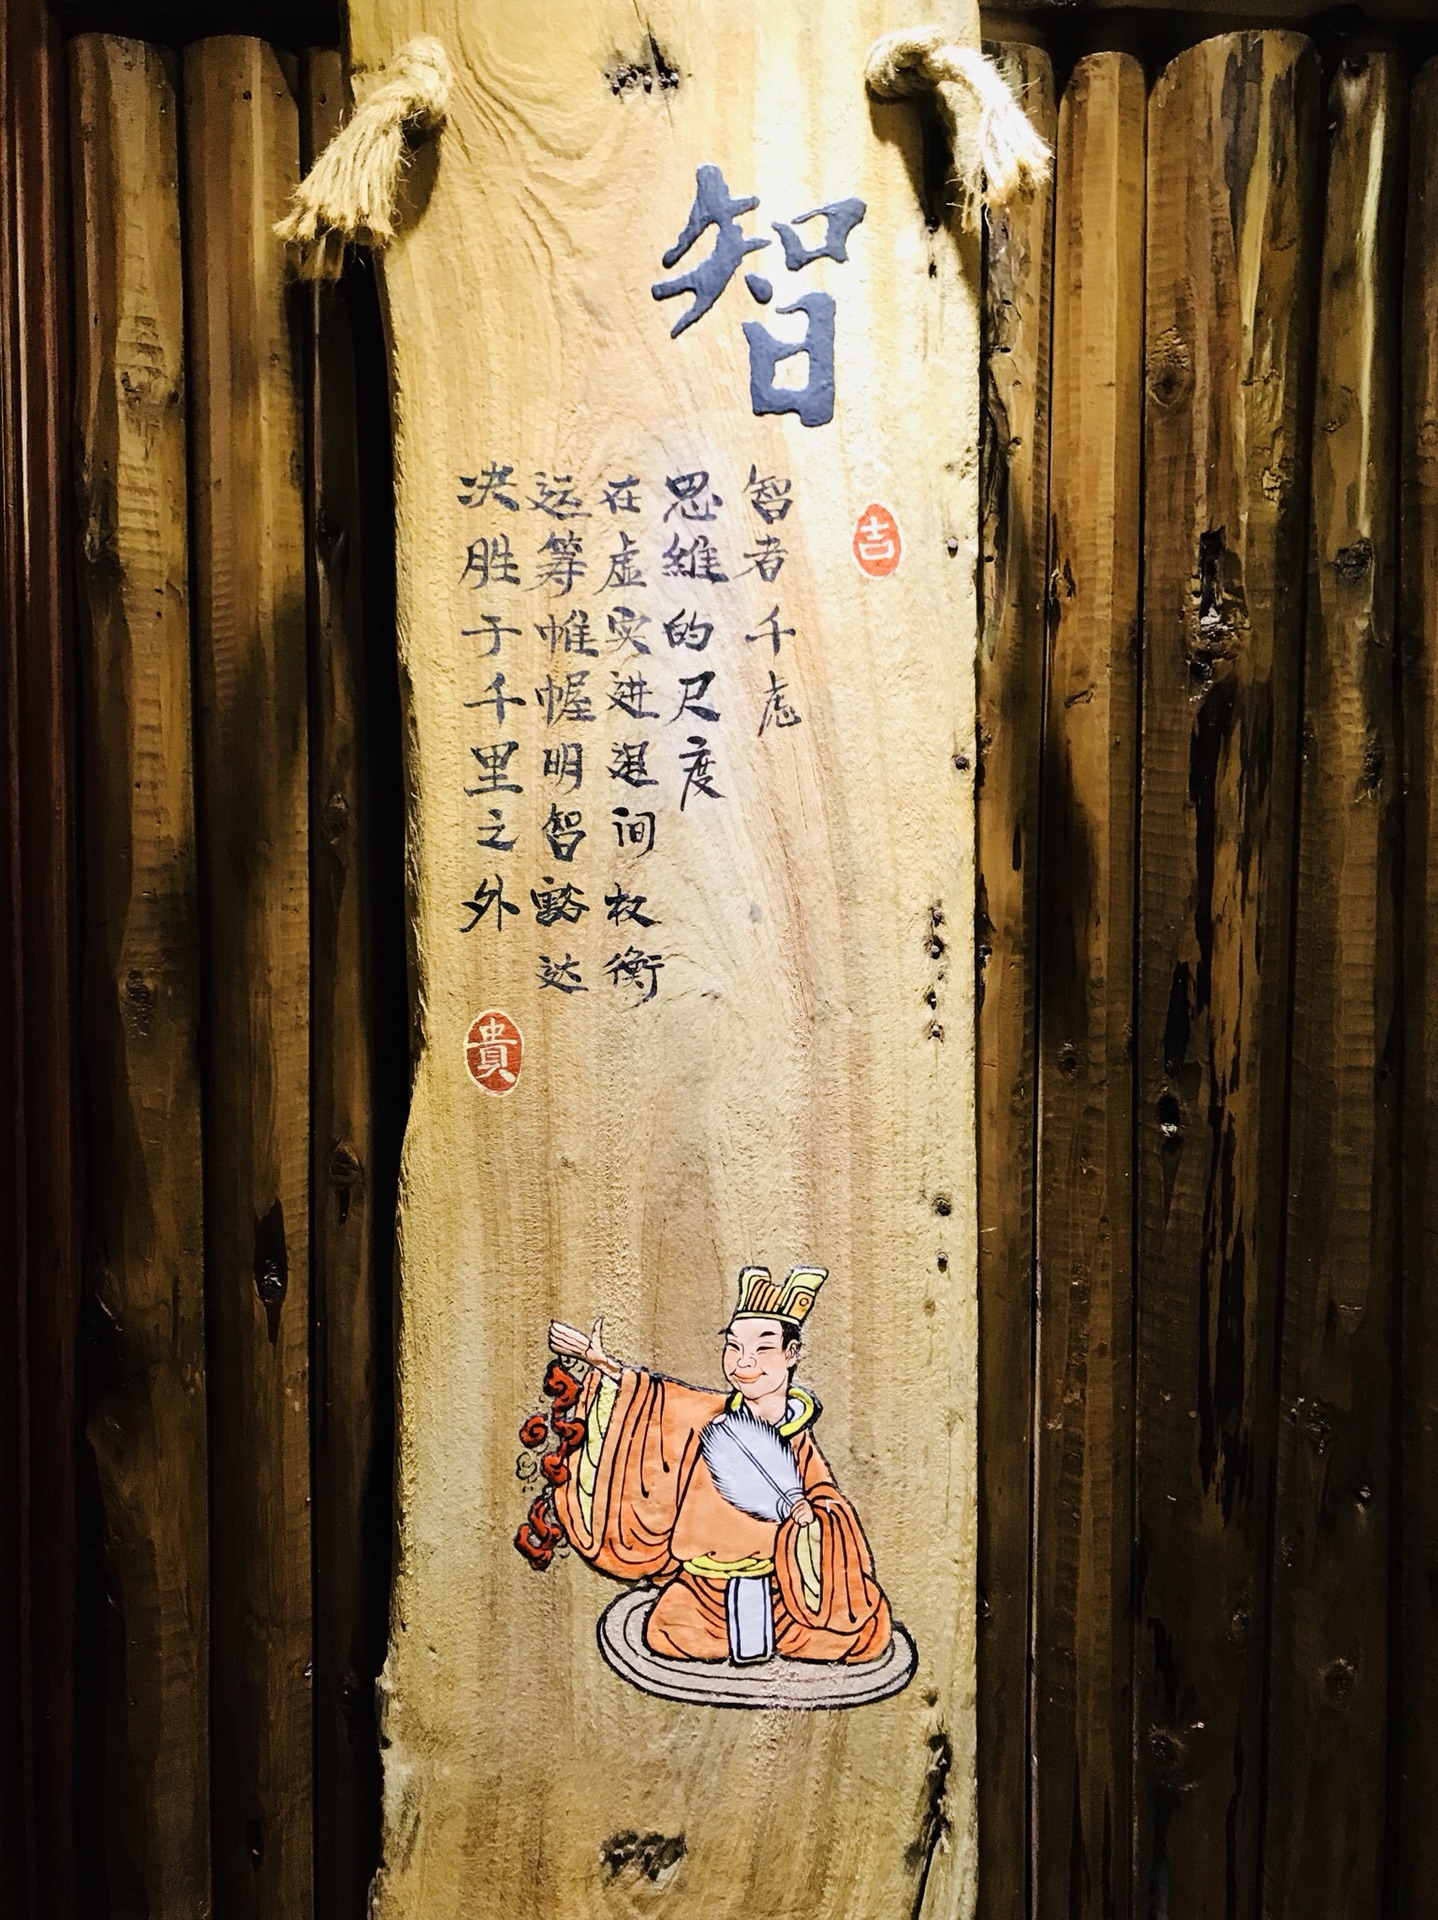 智
吉
智者千虑
思維的尺度
在虚实进退间权衡
运筹帷幄明智豁达
决胜于千里之外
貴